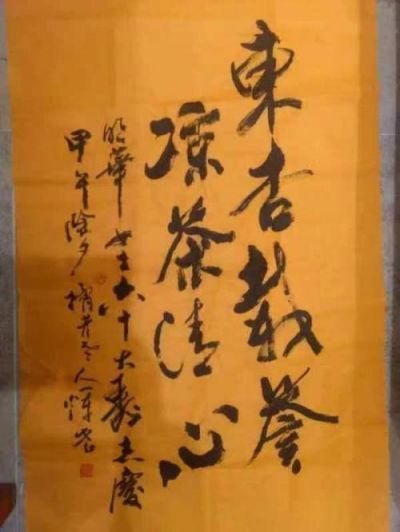 東杏載譽
凉茶清心
明華女士六十大壽志慶
甲午除夕